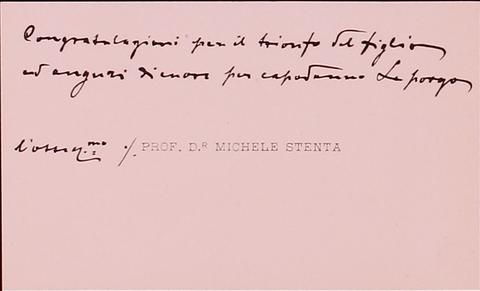 Congratulazioni per il trionfo del figlio
ed auguri di cuore per capodanno Le porgo
l'osseq.mo ./. PROF. D.R MICHELE STENTA